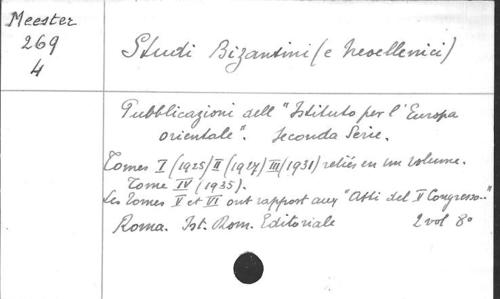 Meester
269
4
Studi Bizantini (e Neoellenici)
Pubblicazioni dell "Istituto per l'Europa
orientale". Seconda Serie.
Tomes I (1925) II (1927) III (1931) reliés en un volume.
Tome IV (1935).
Les tomes V et VI ont rapport aux "Atti del V Congresso.."
Roma. Ist. Rom. Editoriale 2 vol 8°